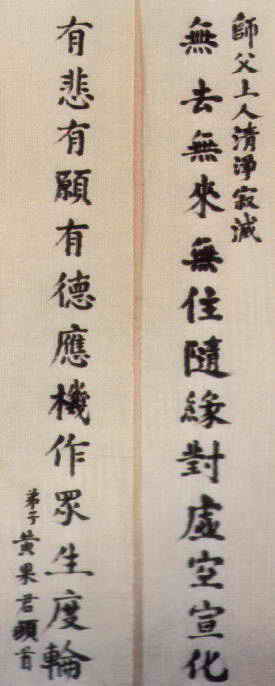 師父上人清淨寂滅
無去無來無住隨緣對虛空宣化
有悲有願有德應機作眾生度輪
弟子黃果君頭首